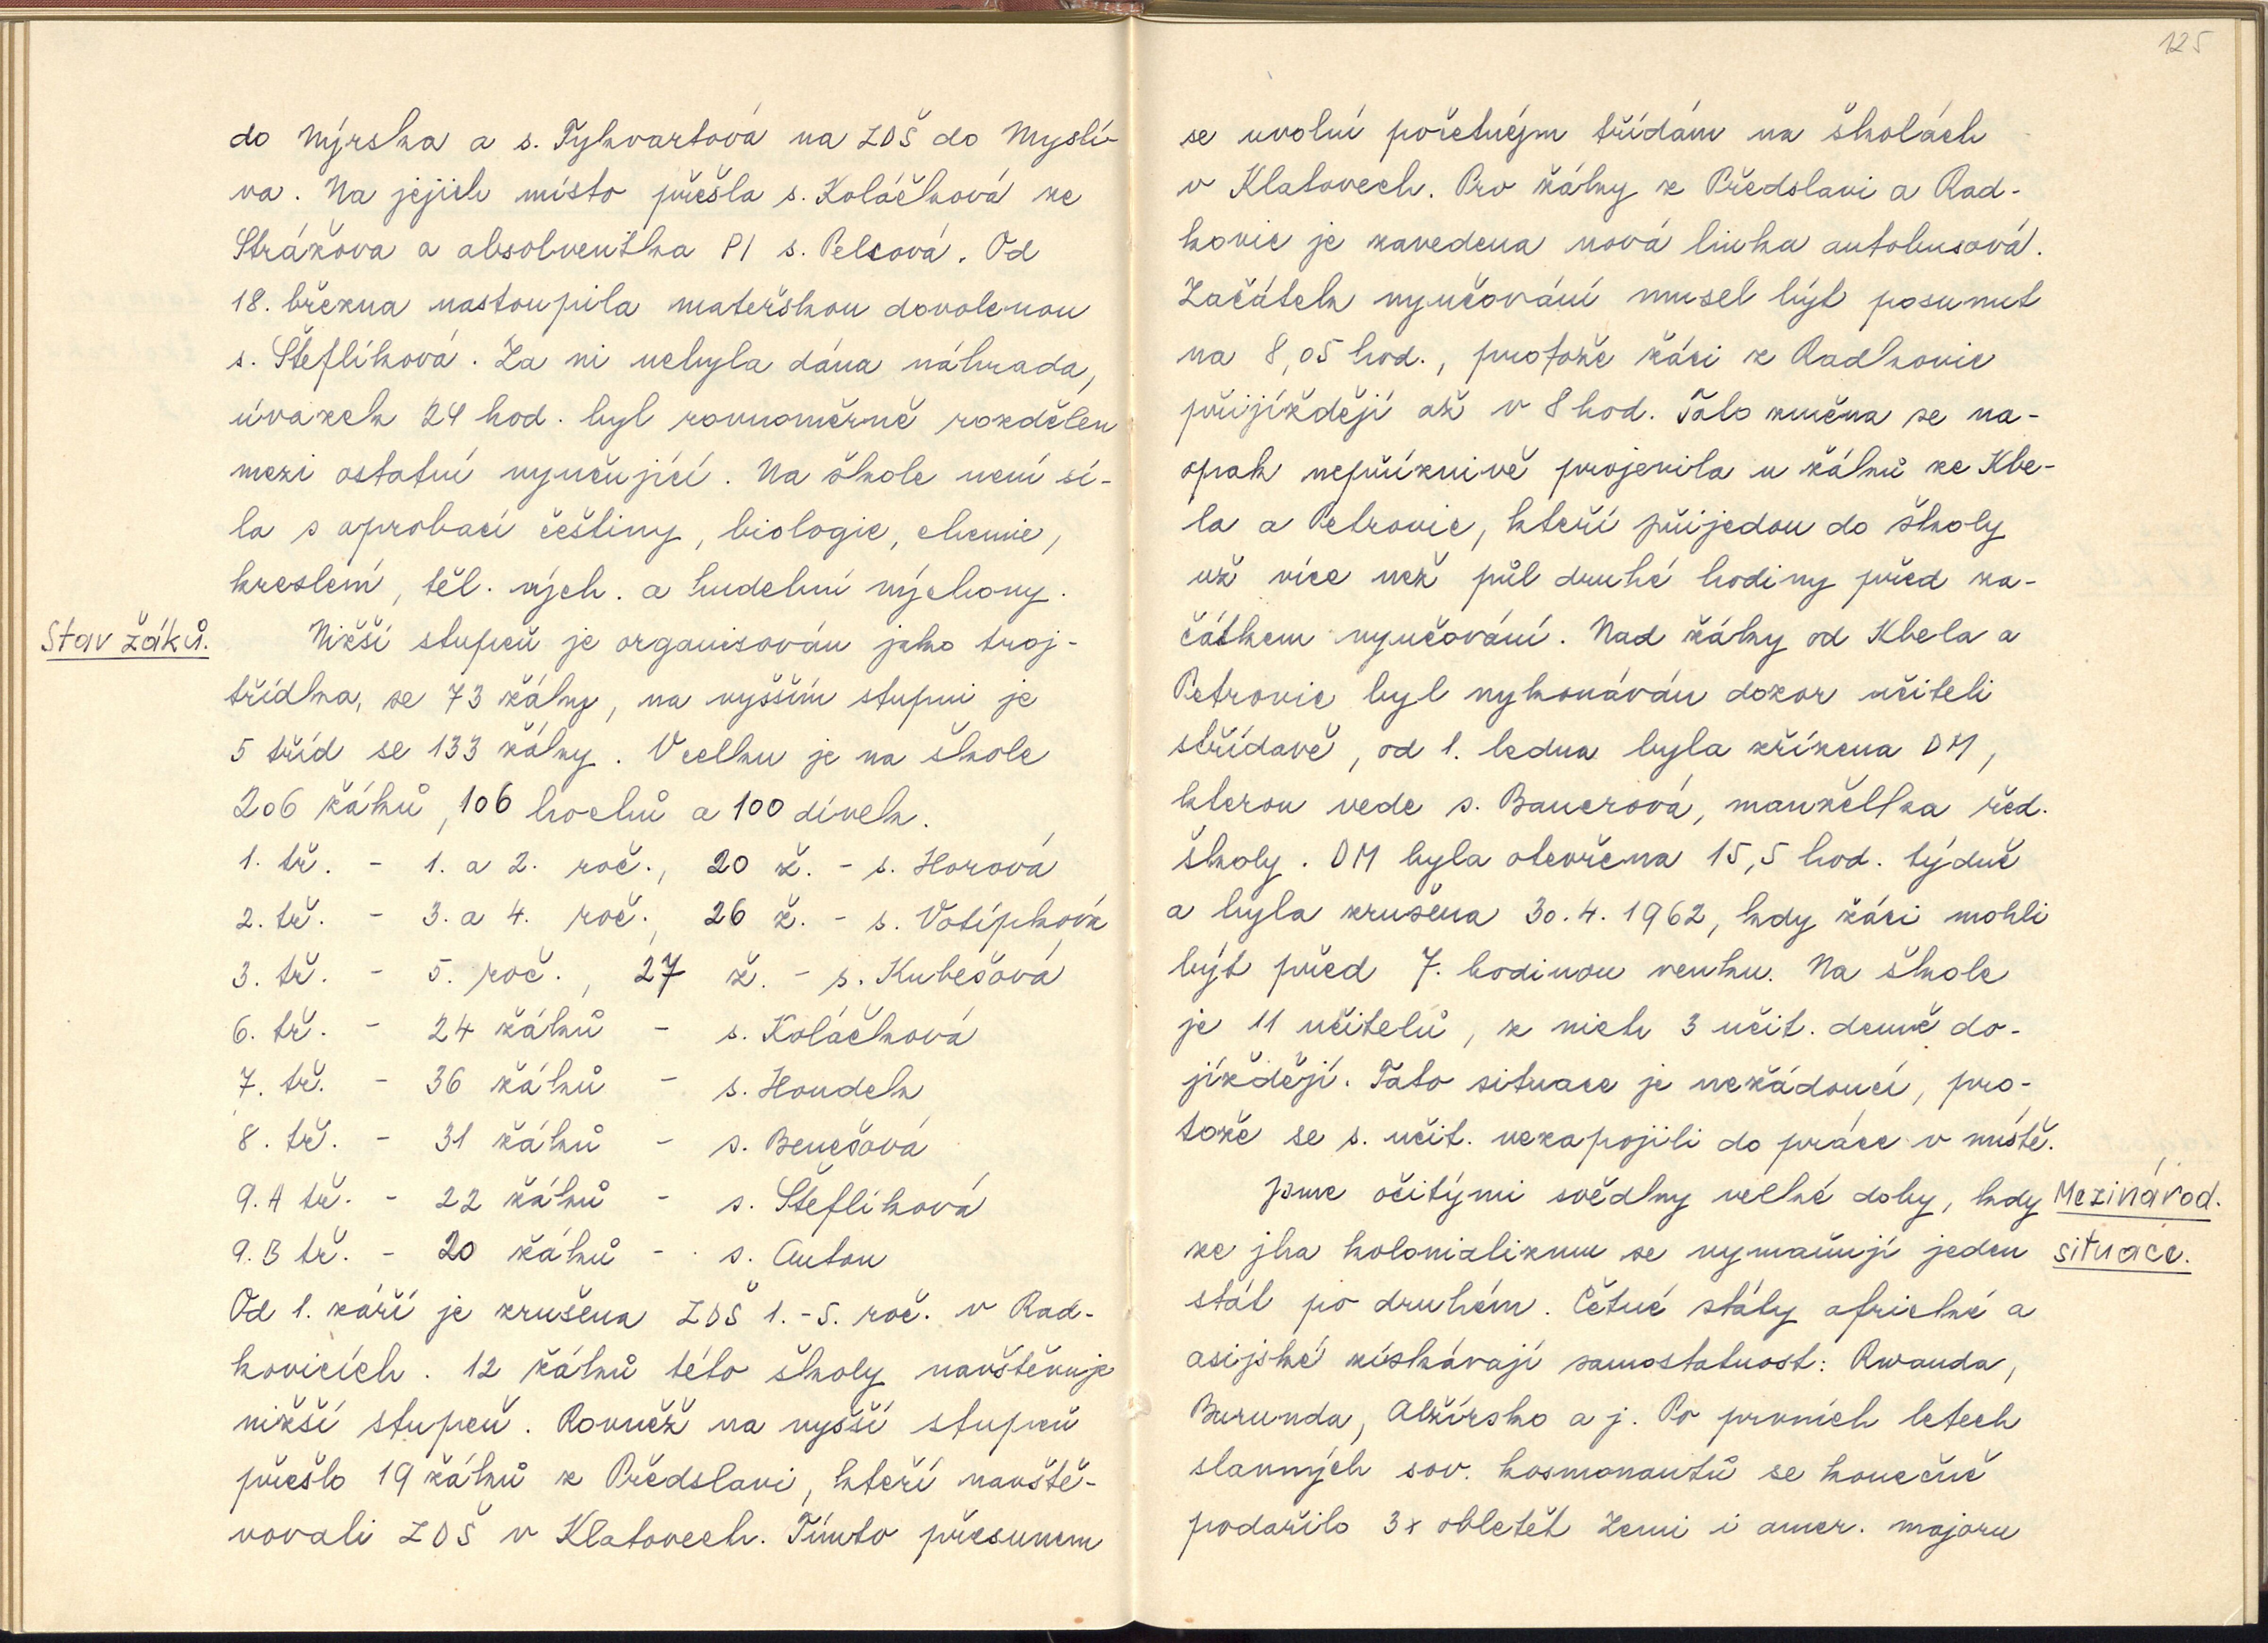 do Nýrska a s. Tykvartová na ZDŠ do Myslí-
va. Na jejich místo přešla s. Koláčková ze
Strážova a absolventka PI s. Pelcová. Od
18. března nastoupila mateřskou dovolenou
s. Šteflíková. Za ni nebyla dána náhrada,
úvazek 24 hod. byl rovnoměrně rozdělen
mezi ostatní vyučující. Na škole není sí-
la s aprobací češtiny, biologie, chemie,
kreslení, těl. vých. a hudební výchovy.
Stav žáků.
Nižší stupeň je organisován jako troj-
třídka, se 73 žáky, na vyšším stupni je
5 tříd se 133 žáky. Vcelku je na škole
206 žáků, 106 hochů a 100 dívek.
1. tř. - 1. a 2. roč., 20 ž. - s. Horová
2. tř. - 3. a 4. roč., 26 ž. - s. Votípková
3. tř. - 5. roč., 27 ž. - s. Kubešová
6. tř. - 24 žáků - s. Koláčková
7. tř. - 36 žáků - s. Houdek
8. tř. - 31 žáků - s. Benešová
9. A tř. - 22 žáků - s. Šteflíková
9. B tř. - 20 žáků - s. Auton
Od 1. září je zrušena ZDŠ 1.-5. roč. v Rad-
kovicích. 12 žáků této školy navštěvuje
nižší stupeň. Rovněž na vyšší stupeň
přešlo 19 žáků z Předslavi, kteří navště-
vovali ZDŠ v Klatovech. Tímto přesunem
125
se uvolní početným třídám na školách
v Klatovech. Pro žáky z Předslavi a Rad-
kovic je zavedena nová linka autobusová.
Začátek vyučování musel být posunut
na 8,05 hod., protože žáci z Radkovic
přijíždějí až v 8 hod. Tato změna se na-
opak nepříznivě projevila u žáků ze Kbe-
la a Petrovic, kteří přijedou do školy
už více než půl druhé hodiny před za-
čátkem vyučování. Nad žáky od Kbela a
Petrovic byl vykonáván dozor učiteli
střídavě, od 1. ledna byla zřízena DM,
kterou vede s. Bauerová, manželka řed.
školy. DM byla otevřena 15,5 hod. týdně
a byla zrušena 30.4.1962, kdy žáci mohli
být před 7. hodinou venku. Na škole
je 11 učitelů, z nich 3 učit. denně do-
jíždějí. Tato situace je nežádoucí, pro-
tože se s. učit. nezapojili do práce v místě.
Jsme očitými svědky velké doby, kdy
Mezinárod.
ze jha kolonializmu se vymaňují jeden
situace.
stát po druhém. Četné státy africké a
asijské získávají samostatnost: Rwanda,
Burunda, Alžírsko a j. Po prvních letech
slavných sov. kosmonautů se konečně
podařilo 3x obletět Zemi i amer. majoru